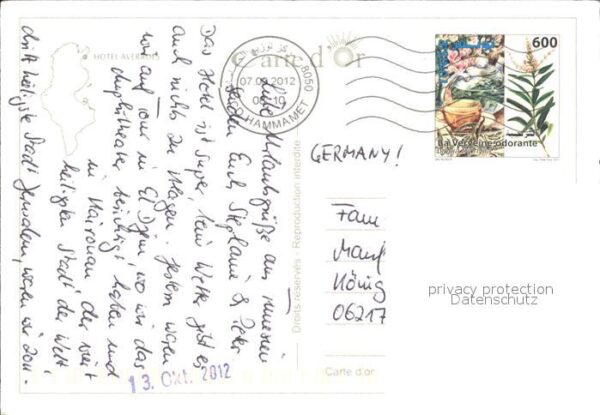 HOTEL AVERROES
Carte d'Or
07 09 2012
8050
HAMMAMET
600
La Verveine odorante
Liebe Urlaubsgrüße aus Tunesien
senden Euch Stephanie & Peter
Das Hotel ist super, beim Wetter gibt es
auch nichts zu klagen. Gestern waren
wir auf Tour in El Djem, wo wir das
Amphitheater besichtigt haben und
in Kairouan der
heiligsten Stadt der Welt
heiligste Stadt Jerusalem, waren wir
GERMANY!
Fam
König
06217
privacy protection
Datenschutz
Droits réservés - Reproduction interdite
Carte d'or
13. Okt. 2012